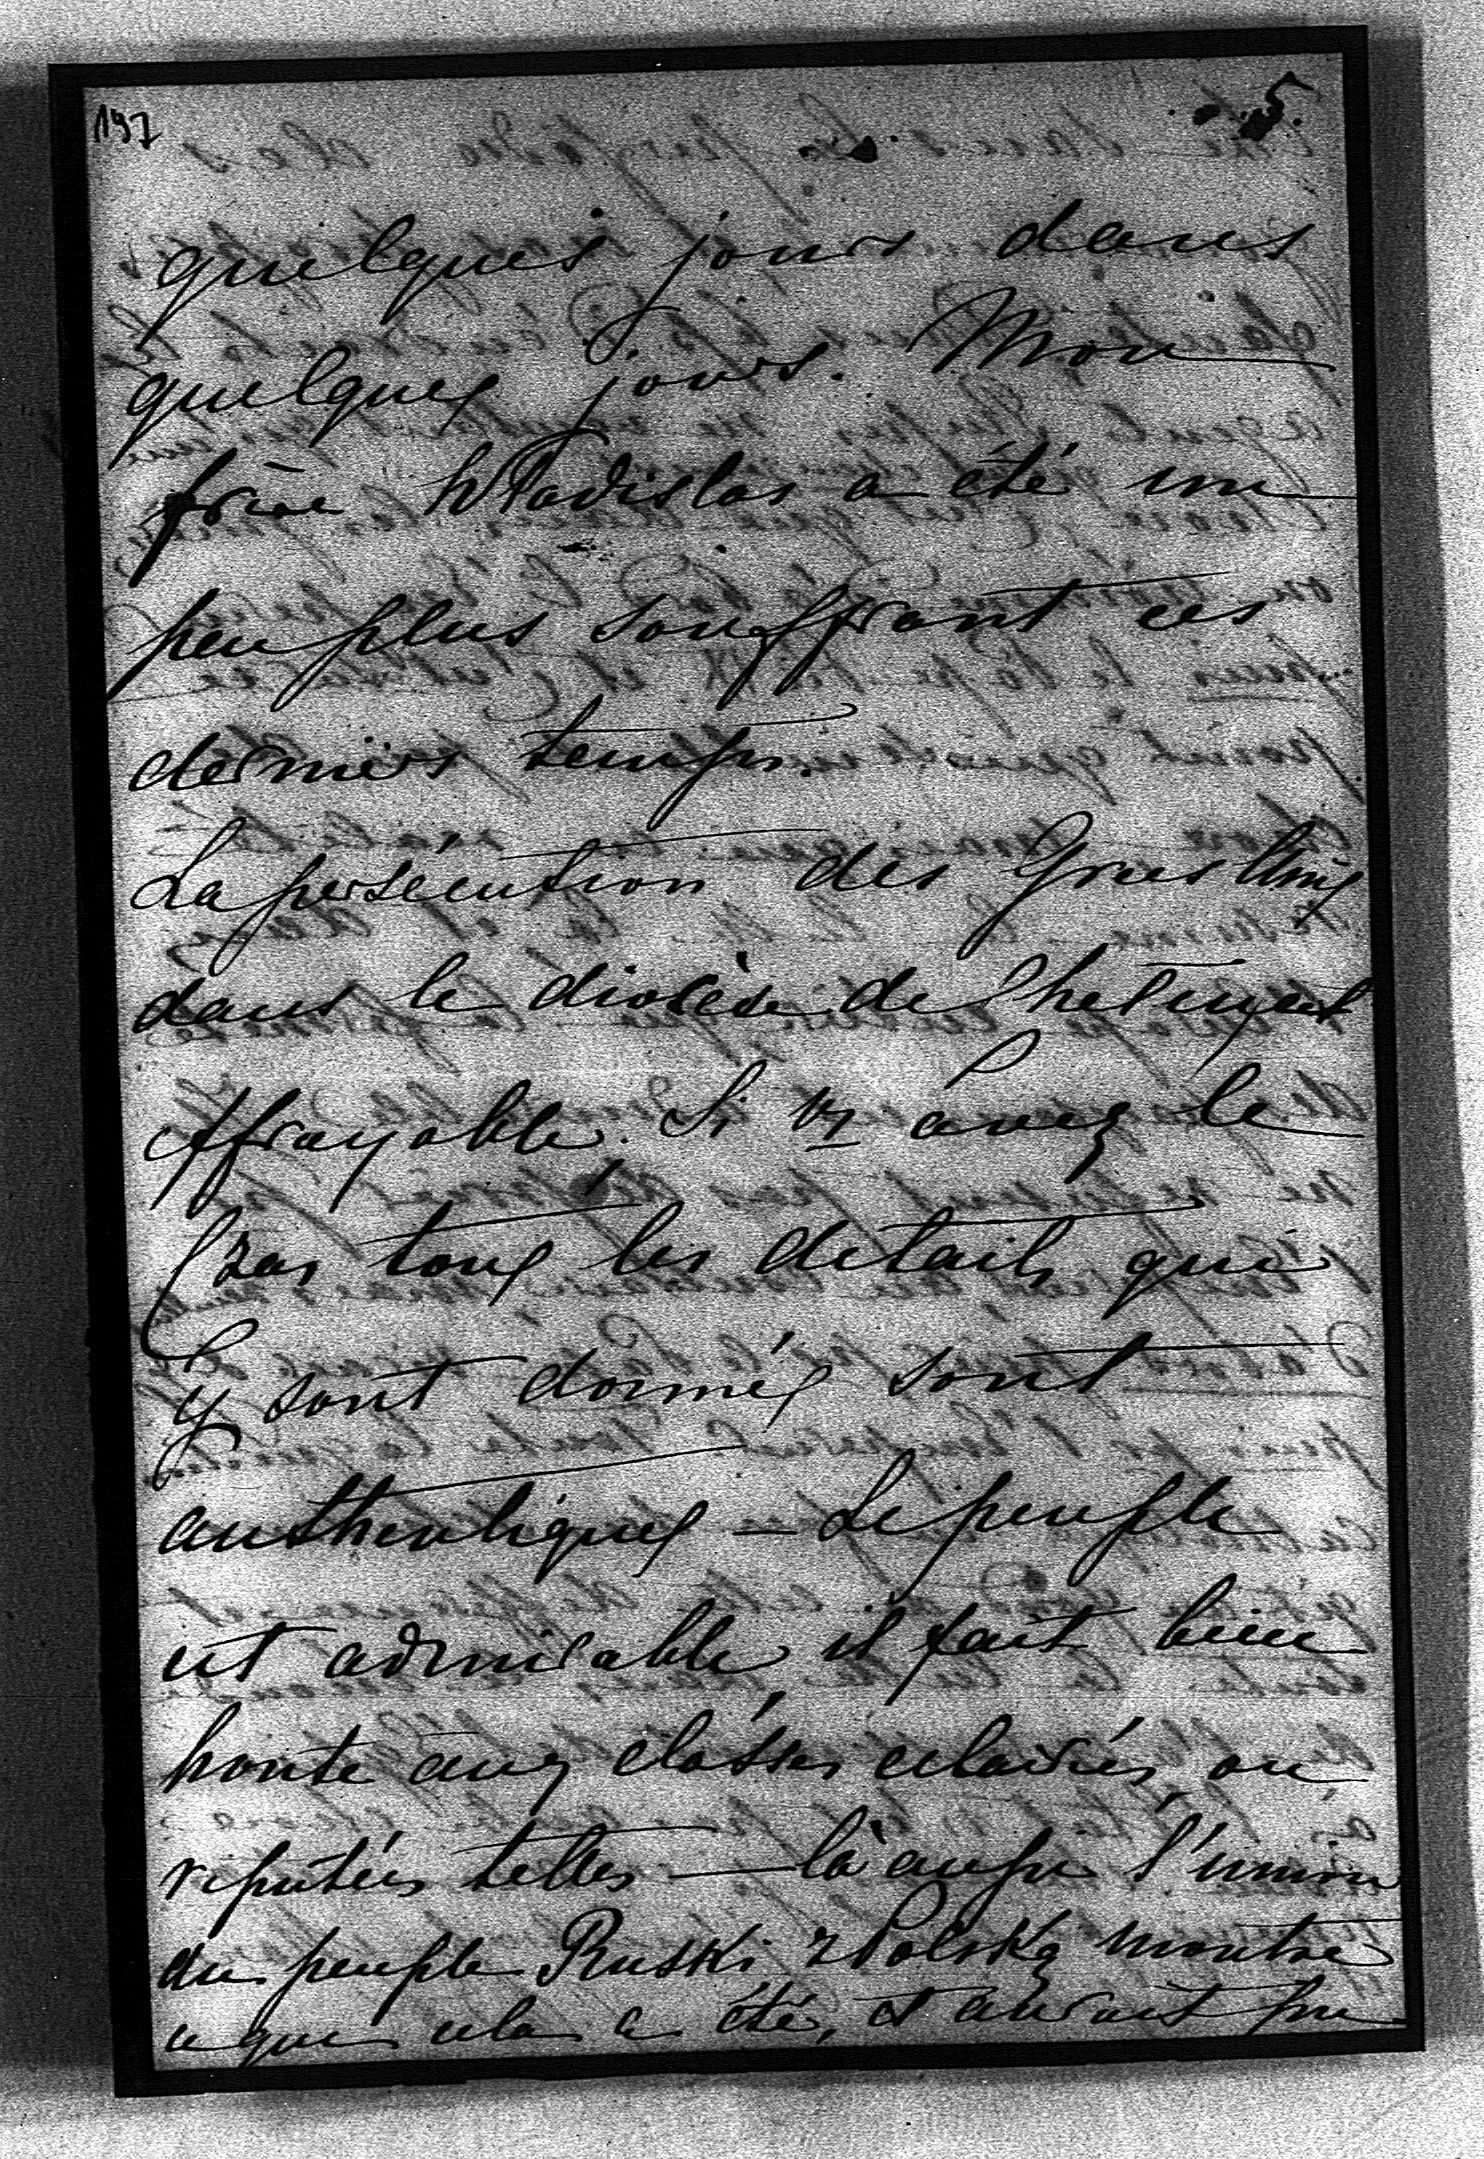 197
5.
quelques jours dans
quelques jours. Mon
frère Wladislas a été un
peu plus souffrant ces
derniers temps.
La persécution des Grecs Unis
dans le diocèse de Chelm est
effrayable. Si vs avez le
Czas tous les details qui
y sont donnés sont
authentiques — Le peuple
est admirable il fait bien
honte aux classes eclairées ou
reputées telles — là aussi l'union
du peuple Ruski z Polską montre
ce que cela a été, et aurait pu